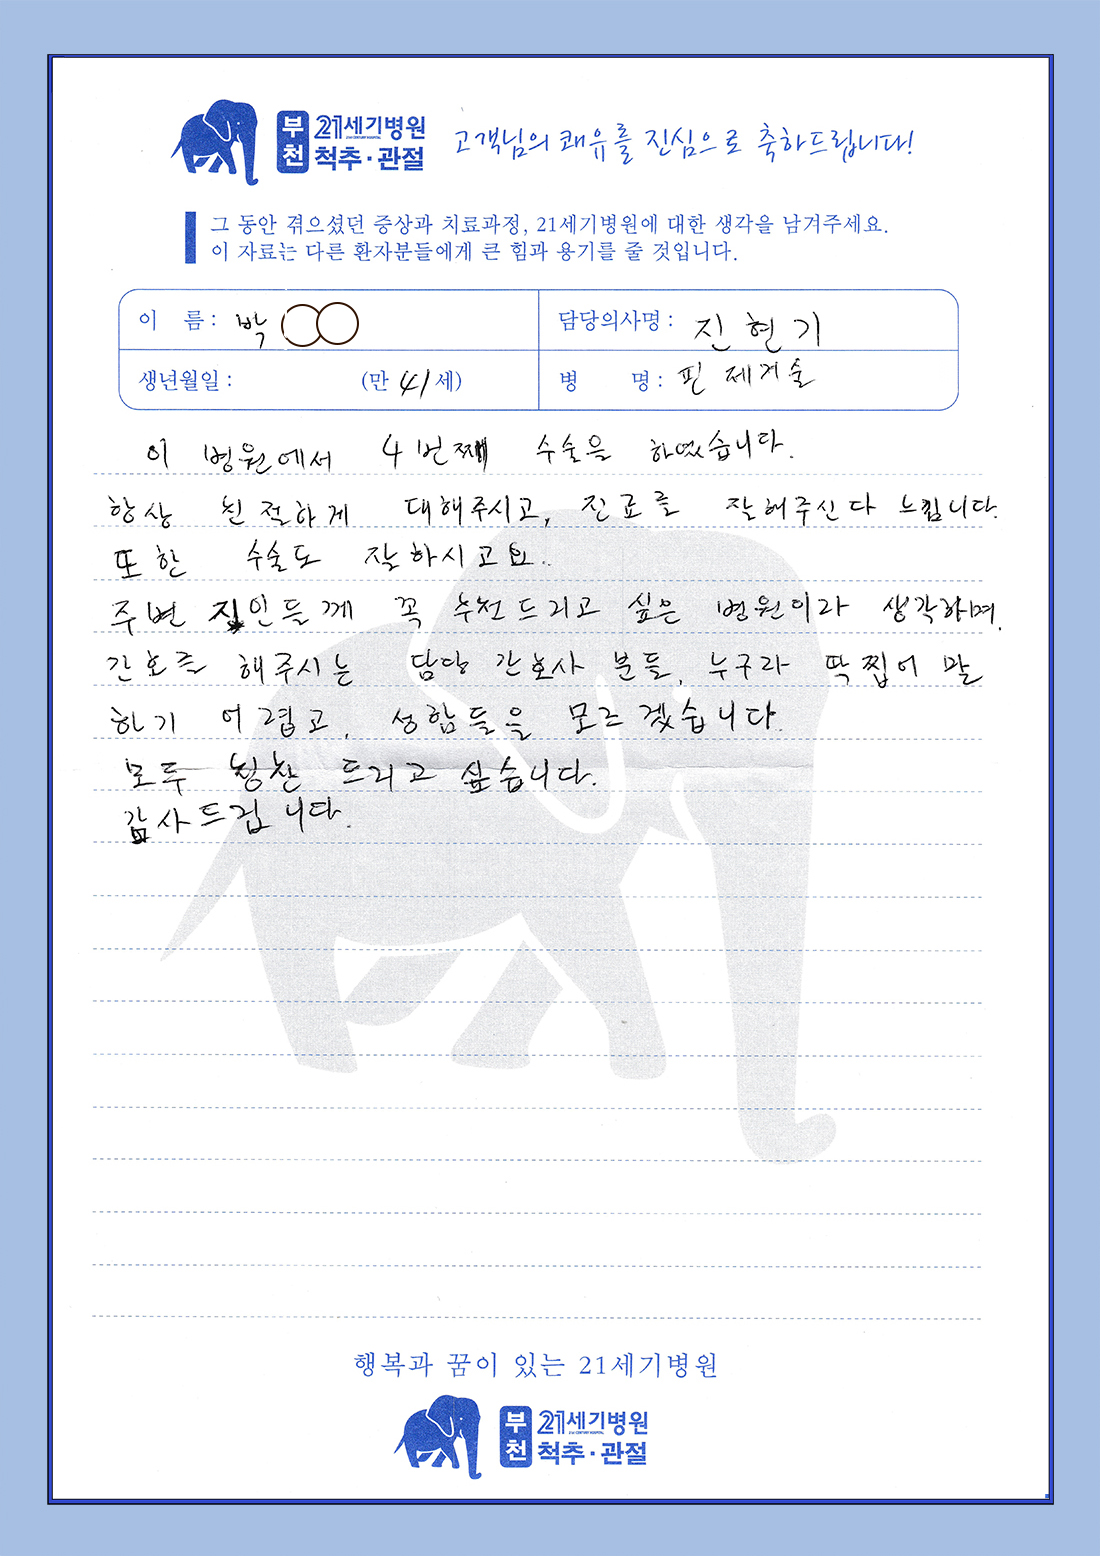 부천 21세기병원 척추·관절
21ST CENTURY HOSPITAL
고객님의 쾌유를 진심으로 축하드립니다!
그 동안 겪으셨던 증상과 치료과정, 21세기병원에 대한 생각을 남겨주세요.
이 자료는 다른 환자분들에게 큰 힘과 용기를 줄 것입니다.
이 름 : 박
담당의사명 : 진현기
생년월일 : (만 41 세)
병 명 : 핀 제거술
이 병원에서 4번째 수술을 하였습니다.
항상 친절하게 대해주시고, 진료를 잘해주신다 느낍니다.
또한 수술도 잘하시고요..
주변 지인들께 꼭 추천드리고 싶은 병원이라 생각하며,
간호를 해주시는 담당 간호사 분들, 누구라 딱 찝어 말
하기 어렵고, 성함들을 모르겠습니다.
모두 칭찬 드리고 싶습니다.
감사드립니다.
행복과 꿈이 있는 21세기병원
부천 21세기병원 척추·관절
21ST CENTURY HOSPITAL